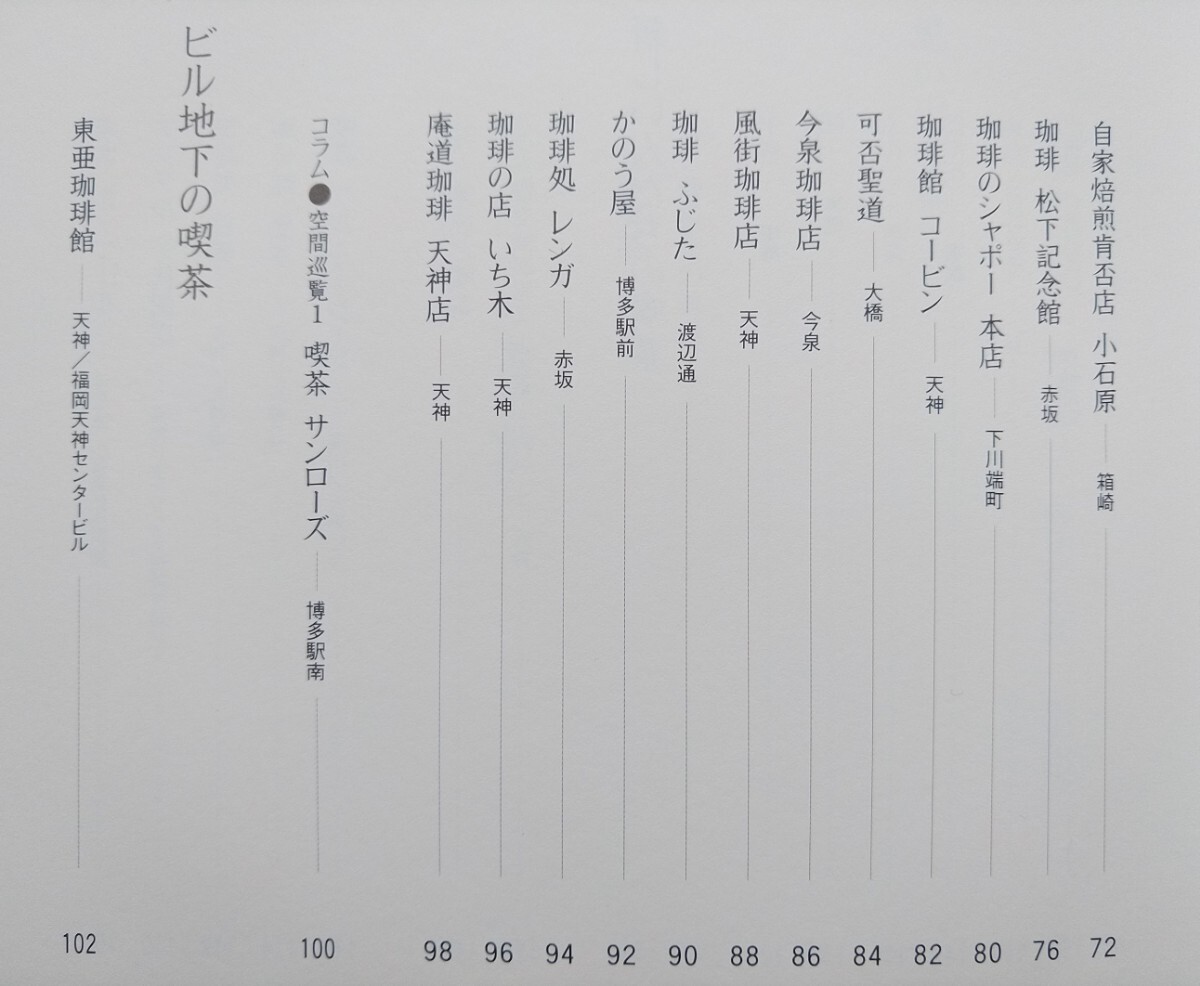 自家焙煎肯否店 小石原 箱崎 72
珈琲 松下記念館 赤坂 76
珈琲のシャポー 本店 下川端町 80
珈琲館 コービン 天神 82
可否聖道 大橋 84
今泉珈琲店 今泉 86
風街珈琲店 天神 88
珈琲 ふじた 渡辺通 90
かのう屋 博多駅前 92
珈琲処 レンガ 赤坂 94
珈琲の店 いち木 天神 96
庵道珈琲 天神店 天神 98
コラム●空間巡覧1 喫茶 サンローズ 博多駅南 100
ビル地下の喫茶
東亜珈琲館 天神／福岡天神センタービル 102